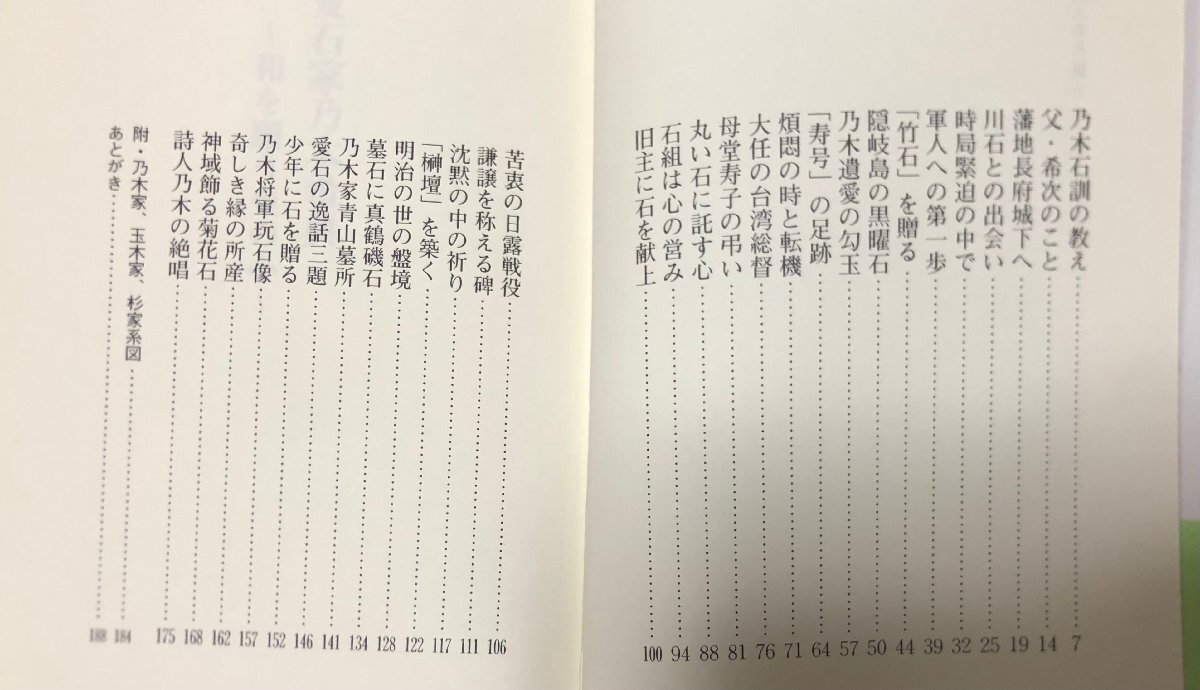 乃木石訓の教え……7
父・希次のこと……14
藩地長府城下へ……19
川石との出会い……25
時局緊迫の中で……32
軍人への第一歩……39
「竹石」を贈る……44
隠岐島の黒曜石……50
乃木遺愛の勾玉……57
「寿号」の足跡……64
煩悶の時と転機……71
大任の台湾総督……76
母堂寿子の弔い……81
丸い石に託す心……88
石組は心の営み……94
旧主に石を献上……100
苦衷の日露戦役……106
謙譲を称える碑……111
沈黙の中の祈り……117
「榊壇」を築く……122
明治の世の盤境……128
墓石に真鶴磯石……134
乃木家青山墓所……141
愛石の逸話三題……146
少年に石を贈る……152
乃木将軍玩石像……157
奇しき縁の所産……162
神域飾る菊花石……168
詩人乃木の絶唱……175
附・乃木家、玉木家、杉家系図……184
あとがき……188